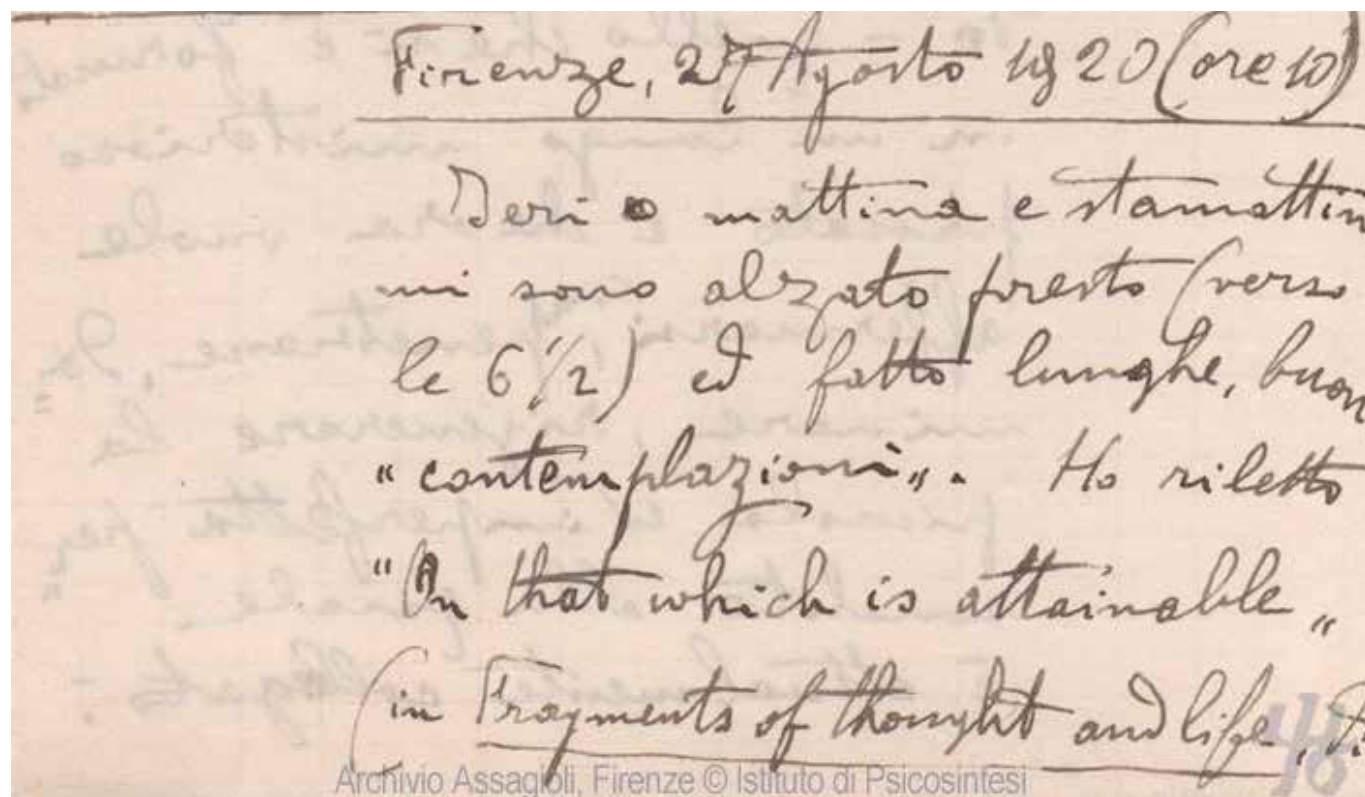 Firenze, 27 Agosto 1920 (ore 10)
Ieri mattina e stamattin
mi sono alzato presto (verso
le 6 1/2) ed fatto lunghe, buon
"contemplazioni„. Ho riletto
"On that which is attainable„
(in Fragments of thought and life,
Archivio Assagioli, Firenze © Istituto di Psicosintesi